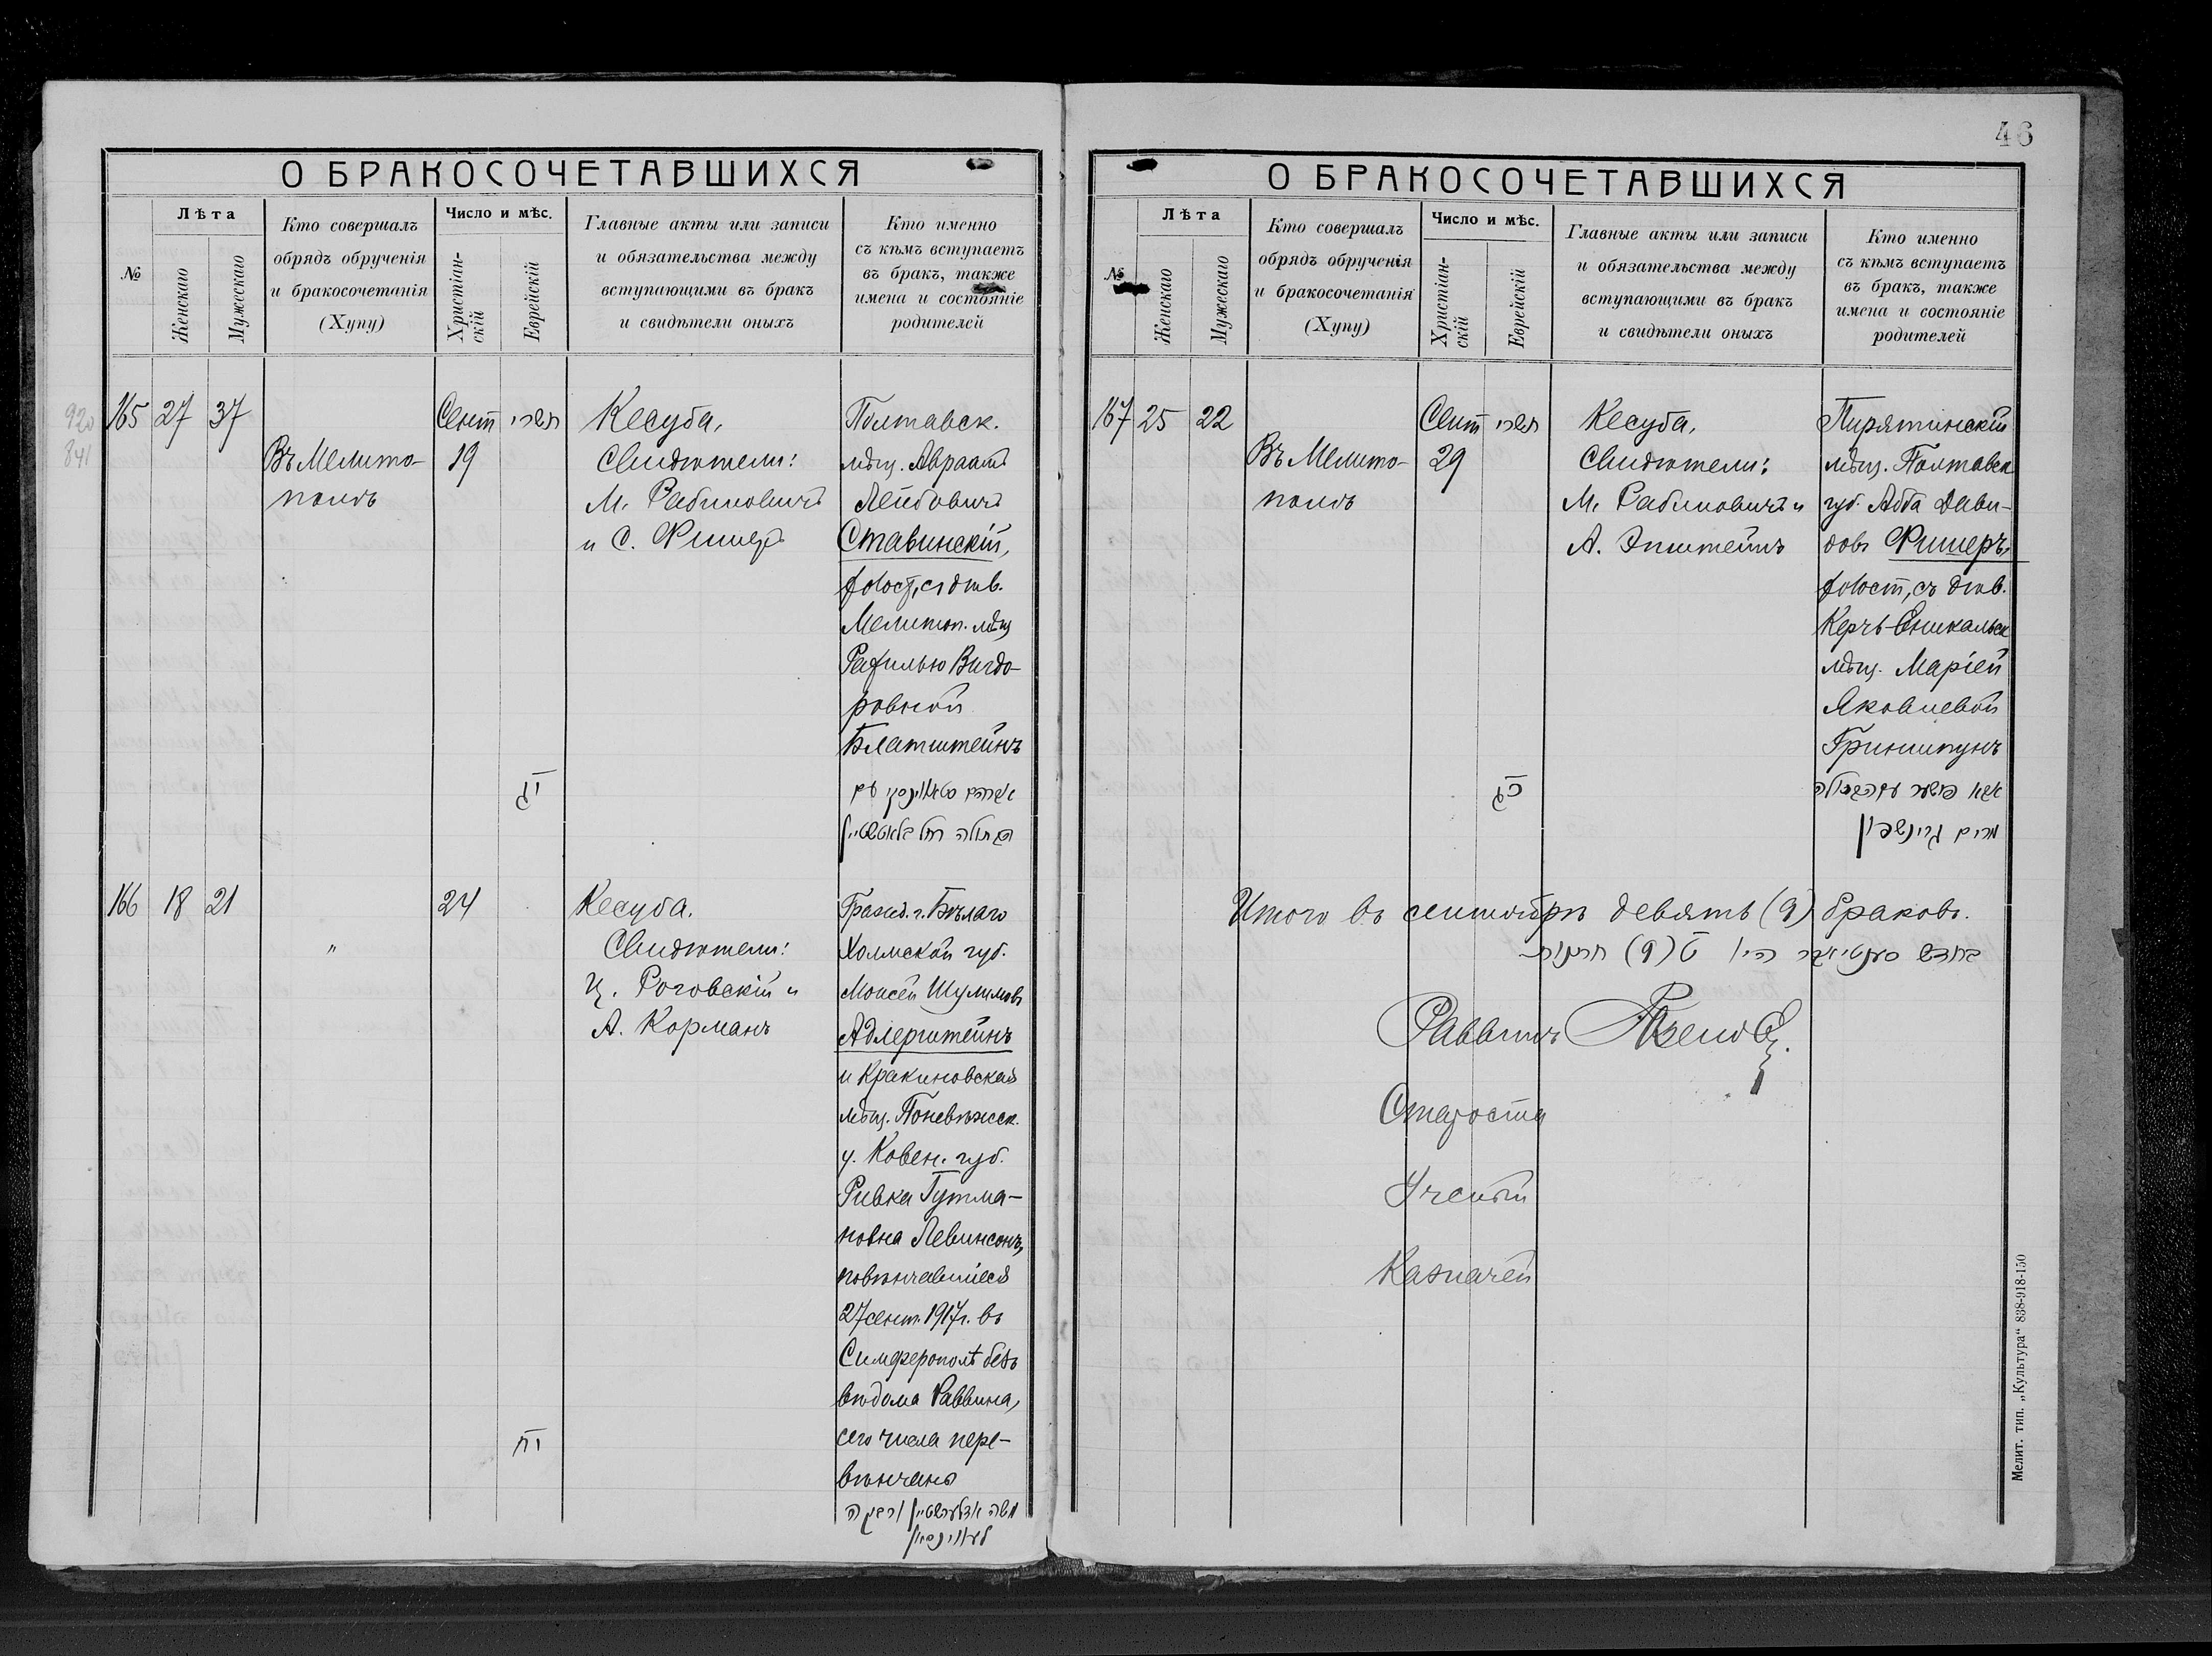 46
О БРАКОСОЧЕТАВШИХСЯ
№
Лѣта
Женскаго
Мужескаго
Кто совершалъ
обрядъ обрученія
и бракосочетанія
(Хупу)
Число и мѣс.
Христіан-
скій
Еврейскій
Главные акты или записи
и обязательства между
вступающими въ бракъ
и свидѣтели оныхъ
Кто именно
съ кѣмъ вступаетъ
въ бракъ, также
имена и состояніе
родителей
920
841
165 27 37
Въ Мелито-
полѣ
Сент תשרי
19
יג
Кесуба.
Свидѣтели:
М. Рабиновичъ
и С. Фишеръ
Полтавск.
мѣщ. Авраамъ
Лейбовичъ
Ставинскій,
холост, съ дѣв.
Мелитоп. мѣщ
Рахилью Вигдо-
ровной
Блатштейнъ
אברהם סטאווינסקי עם
הבתולה רחל בלאטשטיין
166 18 21
"
24
יח
Кесуба.
Свидѣтели:
Ц. Роговскій и
А. Корманъ
Гражд. г. Бѣлаго
Холмской губ.
Моисей Шулимовъ
Адлерштейнъ
и Кракиновская
мѣщ. Поневѣжск.
у. Ковен. губ.
Ривка Гутма-
новна Левинсонъ,
повѣнчавшіеся
27 сент. 1917 г. въ
Симферополѣ безъ
вѣдома Раввина,
сего числа пере-
вѣнчаны
משה אדלערשטיין ורבקה
לעווינסאן
О БРАКОСОЧЕТАВШИХСЯ
№
Лѣта
Женскаго
Мужескаго
Кто совершалъ
обрядъ обрученія
и бракосочетанія
(Хупу)
Число и мѣс.
Христіан-
скій
Еврейскій
Главные акты или записи
и обязательства между
вступающими въ бракъ
и свидѣтели оныхъ
Кто именно
съ кѣмъ вступаетъ
въ бракъ, также
имена и состояніе
родителей
167 25 22
Въ Мелито-
полѣ
Сент תשרי
29
כג
Кесуба.
Свидѣтели:
М. Рабиновичъ и
А. Эпштейнъ
Пирятинскій
мѣщ. Полтавск
губ. Абба Дави-
довъ Фишеръ,
холост, съ дѣв.
Керчь-Еникальск
мѣщ. Маріей
Яковлевой
Гриншпунъ
אבא פישער עם הבתולה
מרים גרינשפון
Итого въ сентябрѣ девять (9) браковъ.
בחדש סענטיאבר היו ט (9) חתונות
Раввинъ
Староста
Ученый
Казначей
Мелит. тип. „Культура“ 838-918-150